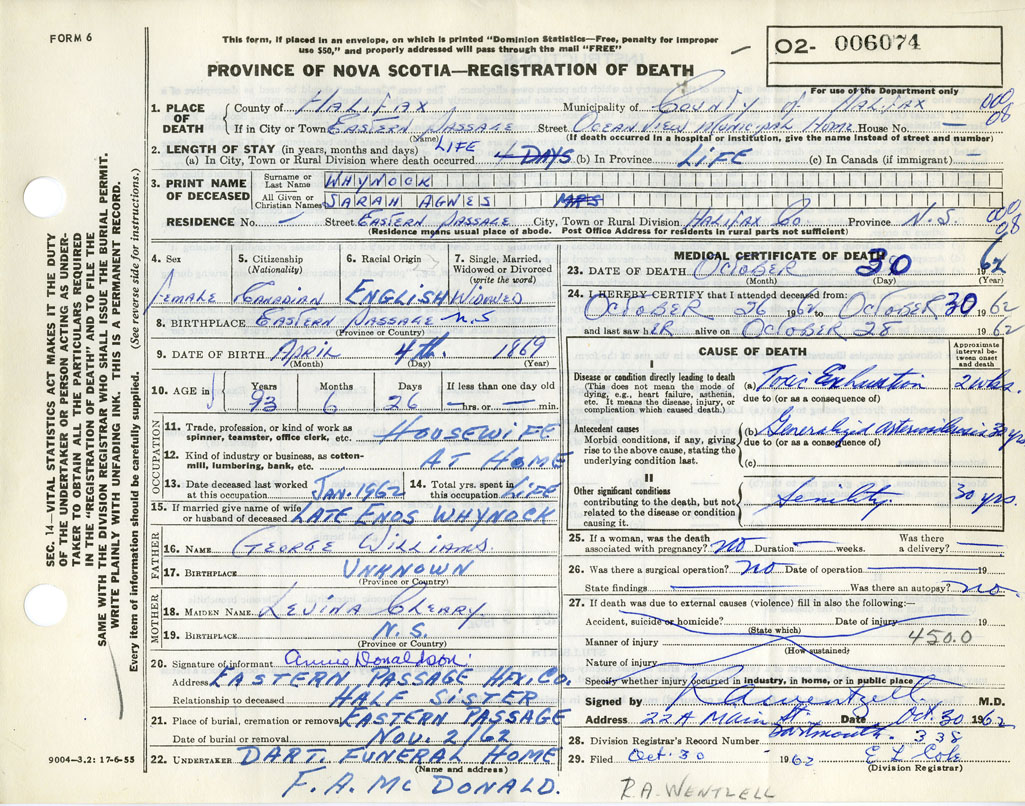 FORM 6
This form, if placed in an envelope, on which is printed "Dominion Statistics—Free, penalty for improper
use $50," and properly addressed will pass through the mail "FREE"
PROVINCE OF NOVA SCOTIA—REGISTRATION OF DEATH
02- 006074
For use of the Department only
1. PLACE OF DEATH { County of HALIFAX Municipality of COUNTY OF HALIFAX
If in City or Town EASTERN PASSAGE Street OCEAN VIEW MUNICIPAL HOME House No. —
(Name) (If death occurred in a hospital or institution, give the name instead of street and number)
000
08
2. LENGTH OF STAY (in years, months and days) LIFE
(a) In City, Town or Rural Division where death occurred 4 DAYS (b) In Province LIFE (c) In Canada (if immigrant) —
3. PRINT NAME OF DECEASED { Surname or Last Name WHYNOCK
All Given or Christian Names SARAH AGNES MRS
RESIDENCE No. — Street EASTERN PASSAGE City, Town or Rural Division HALIFAX CO Province N.S.
(Residence means usual place of abode. Post Office Address for residents in rural parts not sufficient)
000
08
4. Sex 5. Citizenship (Nationality) 6. Racial Origin 7. Single, Married, Widowed or Divorced (write the word)
FEMALE CANADIAN ENGLISH WIDOWED
8. BIRTHPLACE EASTERN PASSAGE N.S
(Province or Country)
9. DATE OF BIRTH APRIL 4th. 1869
(Month) (Day) (Year)
10. AGE in { Years Months Days If less than one day old
93 6 26 —hrs. or — min.
OCCUPATION
11. Trade, profession, or kind of work as spinner, teamster, office clerk, etc. HOUSEWIFE
12. Kind of industry or business, as cotton-mill, lumbering, bank, etc. AT HOME
13. Date deceased last worked at this occupation JAN. 1962 14. Total yrs. spent in this occupation LIFE
15. If married give name of wife or husband of deceased LATE ENOS WHYNOCK
FATHER
16. NAME GEORGE WILLIAMS.
17. BIRTHPLACE UNKNOWN
(Province or Country)
MOTHER
18. MAIDEN NAME LEVINA CLEARY
19. BIRTHPLACE N.S.
(Province or Country)
20. Signature of informant Annie Donaldson.
Address EASTERN PASSAGE HFX. CO.
Relationship to deceased HALF SISTER
21. Place of burial, cremation or removal EASTERN PASSAGE
Date of burial or removal NOV. 2/62
22. UNDERTAKER DART. FUNERAL HOME
(Name and address)
F. A. MC DONALD.
9004—3.2: 17-6-55
MEDICAL CERTIFICATE OF DEATH
23. DATE OF DEATH OCTOBER 30 1962
(Month) (Day) (Year)
24. I HEREBY CERTIFY that I attended deceased from:
OCTOBER 26 1962 to OCTOBER 30 1962
and last saw hER alive on OCTOBER 28 1962
CAUSE OF DEATH
Approximate interval between onset and death
I
Disease or condition directly leading to death
(This does not mean the mode of dying, e.g., heart failure, asthenia, etc. It means the disease, injury, or complication which caused death.)
(a) Toxic Exhaustion 2 wks.
due to (or as a consequence of)
Antecedent causes
Morbid conditions, if any, giving rise to the above cause, stating the underlying condition last.
(b) Generalized arteriosclerosis 30 yrs
due to (or as a consequence of)
(c)
II
Other significant conditions
contributing to the death, but not related to the disease or condition causing it.
Senility. 30 yrs.
25. If a woman, was the death associated with pregnancy? no Duration — weeks. Was there a delivery? —
26. Was there a surgical operation? no Date of operation — 19
State findings — Was there an autopsy? no.
27. If death was due to external causes (violence) fill in also the following:—
Accident, suicide or homicide? Date of injury 19
(State which)
450.0
Manner of injury
(How sustained)
Nature of injury
Specify whether injury occurred in industry, in home, or in public place
Signed by R A Wentzell M.D.
Address 22A Main St Date Oct. 30 1962
Dartmouth.
28. Division Registrar's Record Number 338
29. Filed Oct. 30 1962 E L Cole
(Division Registrar)
R. A. WENTZELL
SEC. 14—VITAL STATISTICS ACT MAKES IT THE DUTY
OF THE UNDERTAKER OR PERSON ACTING AS UNDER-
TAKER TO OBTAIN ALL THE PARTICULARS REQUIRED
IN THE "REGISTRATION OF DEATH" AND TO FILE THE
SAME WITH THE DIVISION REGISTRAR WHO SHALL ISSUE THE BURIAL PERMIT.
WRITE PLAINLY WITH UNFADING INK. THIS IS A PERMANENT RECORD.
Every item of information should be carefully supplied. (See reverse side for instructions.)